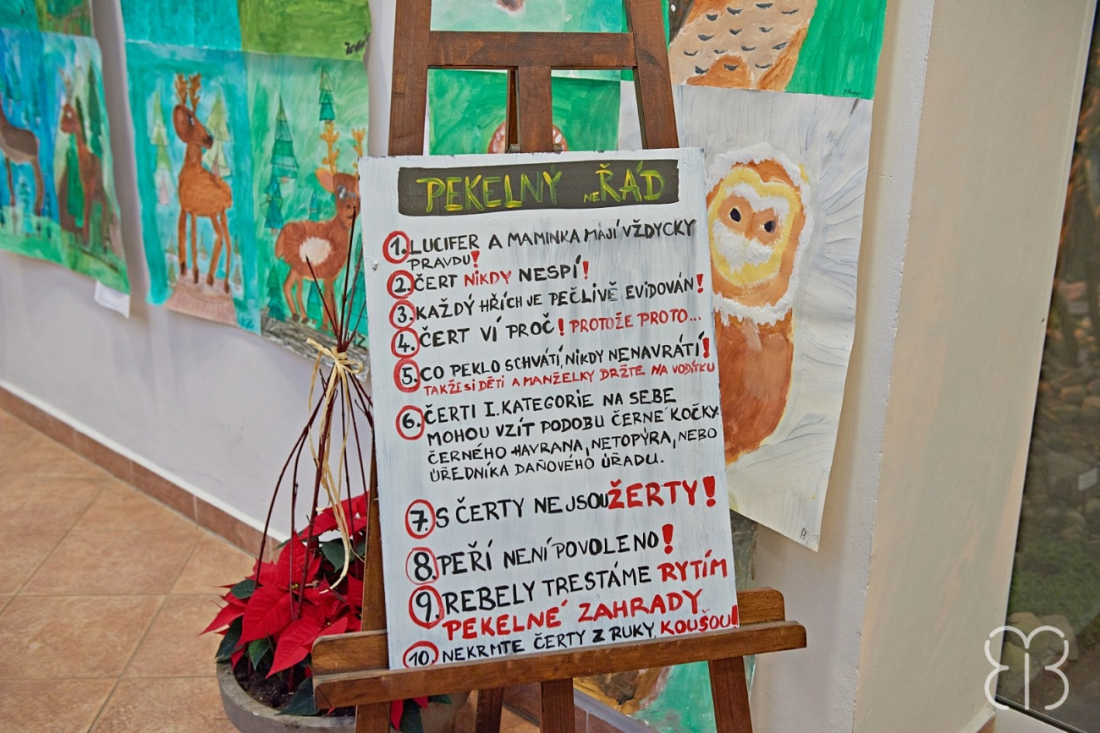 PEKELNY neŘÁD
1. LUCIFER A MAMINKA MAJÍ VŽDYCKY
PRAVDU!
2. ČERT NIKDY NESPÍ!
3. KAŽDÝ HŘÍCH JE PEČLIVĚ EVIDOVÁN!
4. ČERT VÍ PROČ! PROTOŽE PROTO...
5. CO PEKLO SCHVÁTÍ, NIKDY NENAVRÁTÍ!
TAKŽE SI DĚTI A MANŽELKY DRŽTE NA VODÍTKU
6. ČERTI I. KATEGORIE NA SEBE
MOHOU VZÍT PODOBU ČERNÉ KOČKY.
ČERNÉHO HAVRANA, NETOPÝRA, NEBO
ÚŘEDNÍKA DAŇOVÉHO ÚŘADU.
7. S ČERTY NEJSOU ŽERTY!
8. PEŘÍ NENÍ POVOLENO!
9. REBELY TRESTÁME RYTÍM
PEKELNÉ ZAHRADY
10. NEKRMTE ČERTY Z RUKY KOUŠOU!